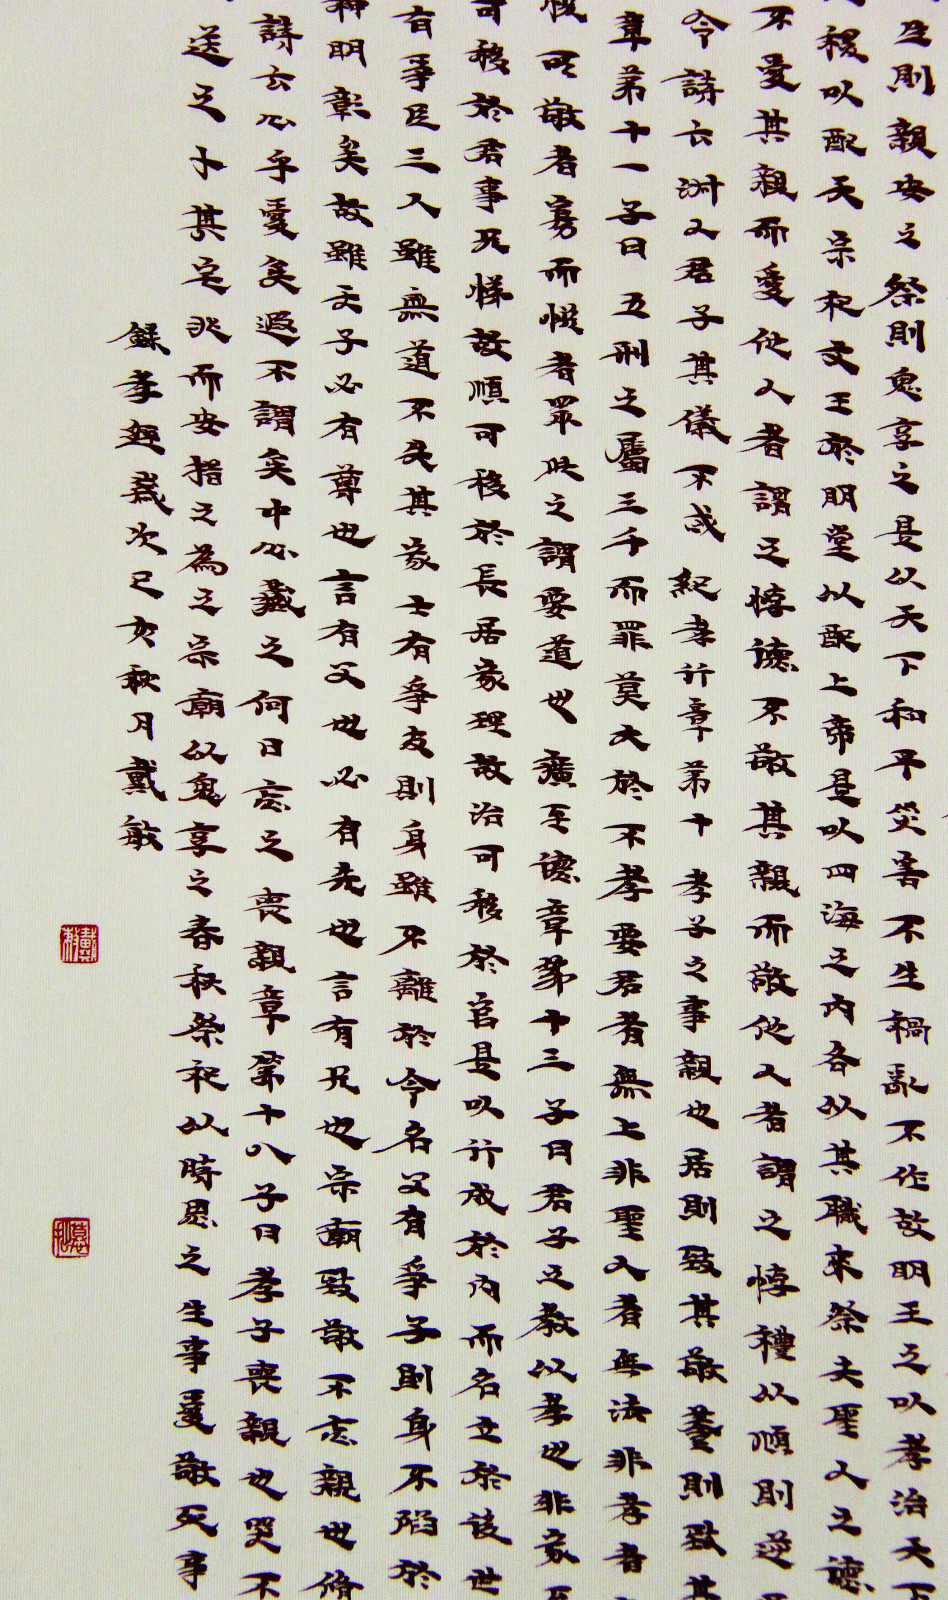 生則親安之祭則鬼享之是以天下和平災害不生禍亂不作故明王之以孝治天下
稷以配天宗祀文王於明堂以配上帝是以四海之内各以其職來祭夫聖人之德
不愛其親而愛他人者謂之悖德不敬其親而敬他人者謂之悖禮以順則逆
令詩云淑人君子其儀不忒 紀孝行章第十 孝子之事親也居則致其敬養則致其
章第十一子曰五刑之屬三千而罪莫大於不孝要君者無上非聖人者無法非孝者
悅所敬者寡而悅者眾此之謂要道也 廣至德章第十三子曰君子之教以孝也非家至
可移於君事兄悌故順可移於長居家理故治可移於官是以行成於内而名立於後世
有爭臣三人雖無道不失其家士有爭友則身雖不離於令名父有爭子則身不陷於
神明彰矣故雖天子必有尊也言有父也必有先也言有兄也宗廟致敬不忘親也脩
詩云心乎愛矣遐不謂矣中心藏之何日忘之 喪親章第十八子曰孝子喪親也哭不
送之卜其宅兆而安措之為之宗廟以鬼享之春秋祭祀以時思之生事愛敬死事
錄孝經歲次己亥秋月戴敏